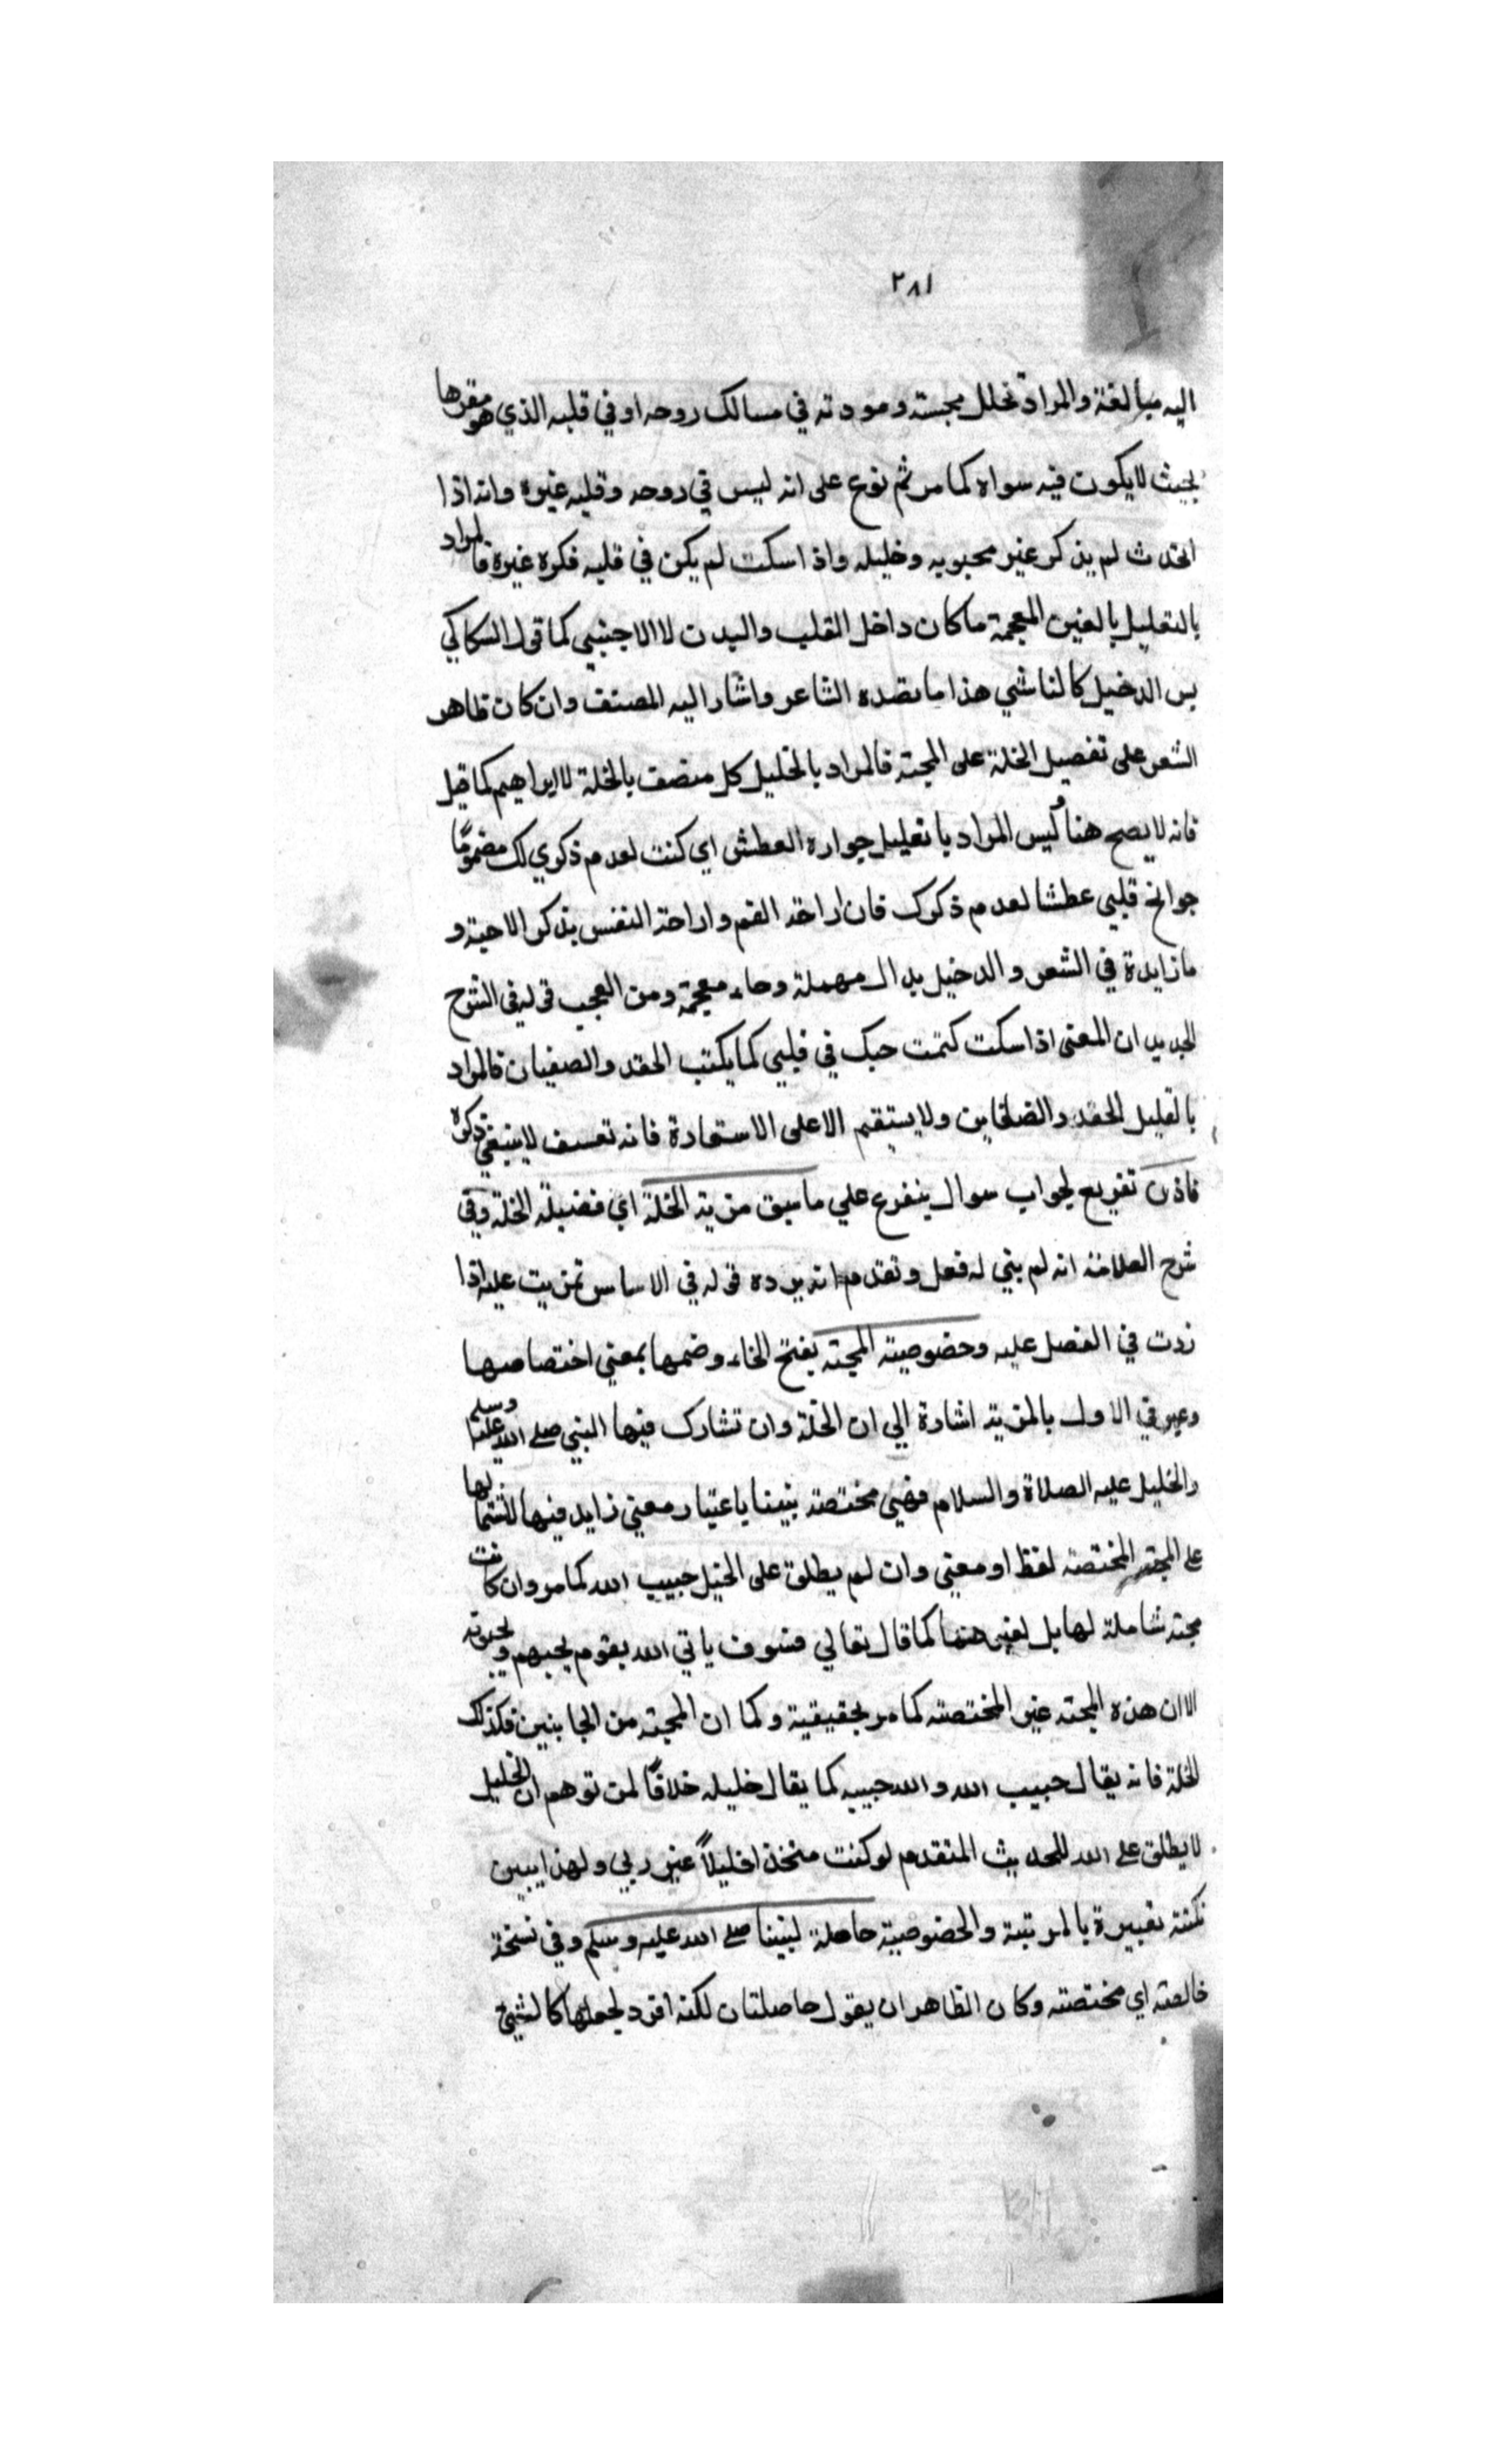 ٢٨١
اليه مبالغة والمراد تخلل محبته ومودته في مسالك روحه اوفي قلبه الذي هو مقرها
بحيث لايكون فيه سواه كما مر ثم نوع على انه ليس في روحه وقلبه غيره وانه اذا
اتحدث لم يذكر غير محبوبه وخليله واذا سكت لم يكن في قلبه فكره غيره فالمراد
بالتغليل بالغين المعجمة ماكان داخل القلب والبدن لا الاجنبي كما قول السكاكي
بس الدخيل كالناشي هذا ما قصده الشاعر واشار اليه المصنف وان كان ظاهر
الشعر على تفضيل الخلة على المحبة فالمراد بالخليل كل متصف بالخلة لا ابراهيم كما قيل
فانه لا يصح هنا وليس المراد بالغليل حرارة العطش اي كنت لعدم ذكري لك مضموما
جوانح قلبي عطشا لعدم ذكرك فان اراحة الفم واراحة النفس بذكر الاحبة و
ما زايدة في الشعر والدخيل بدال مهملة وخاء معجمة ومن العجب قوله في الشرح
الجديد ان المعنى اذا سكت كتمت حبك في قلبي كما يكتب الحقد والضغيان فالمراد
بالغليل الحقد والضغاين ولا يستقيم الا على الاستعارة فانه تعسف لا ينبغي ذكره
فاذن تفريع لجواب سوال ينفرع علي ما سبق مزية الخلة اي فضيلة الخلة وفي
شرح العلامة انه لم يبني له فعل وتقدم انه يرده قوله في الاساس تمزيت عليه اذا
زدت في الفضل عليه وخصوصية المحبة بفتح الخاء وضمها بمعني اختصاصها
وعبر في الاول بالمزية اشارة الي ان الخلة وان تشارك فيها النبي صلى الله عليه وسلم
والخليل عليه الصلاة والسلام فهي مختصة بنبينا باعتبار معني زايد فيها لاشتمالها
على المحبة المختصة لفظا ومعني وان لم يطلق على الخليل حبيب الله كما مر وان كانت
محبة شاملة لها بل لغيرهما كما قال تعالي فسوف ياتي الله بقوم يحبهم ويحبونه
الا ان هذه المحبة غير المختصة كما مر بحقيقية وكما ان المحبة من الجانبين فكذلك
الخلة فانه يقال حبيب الله والله حبيبه كما يقال خليله خلافًا لمن توهم ان الخليل
لا يطلق على الله للحديث المتقدم لو كنت متخذا خليلاً غير ربي ولهذا يبين
نكتة تعبيره بالمرتبة والخصوصية حاصلة لنبينا صلى الله عليه وسلم وفي نسخة
خالصة اي مختصة وكان الظاهر ان يقول حاصلتان لكنه افرد لجعلها كالشيئ